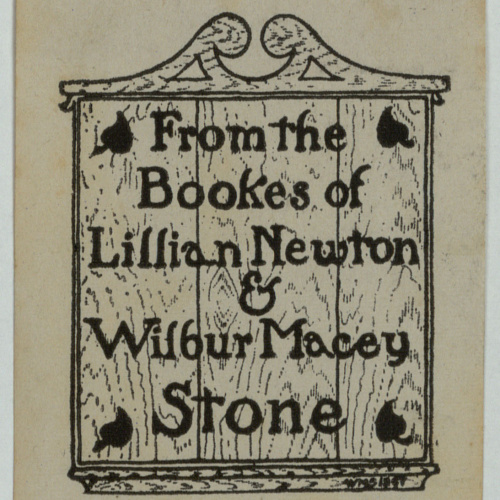 From the
Bookes of
Lillian Newton
&
Wilbur Macey
Stone